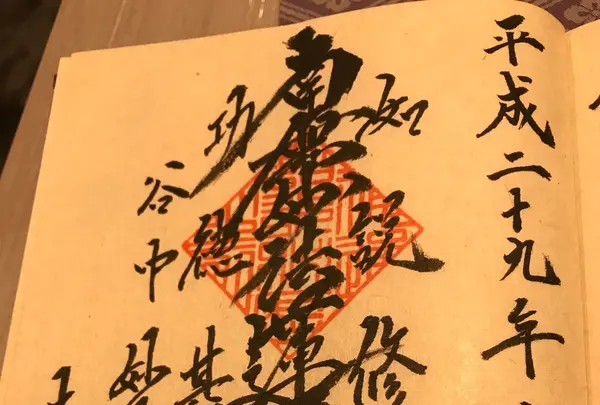 平成二十九年
如説修
南無妙法蓮
功徳甚
谷中妙